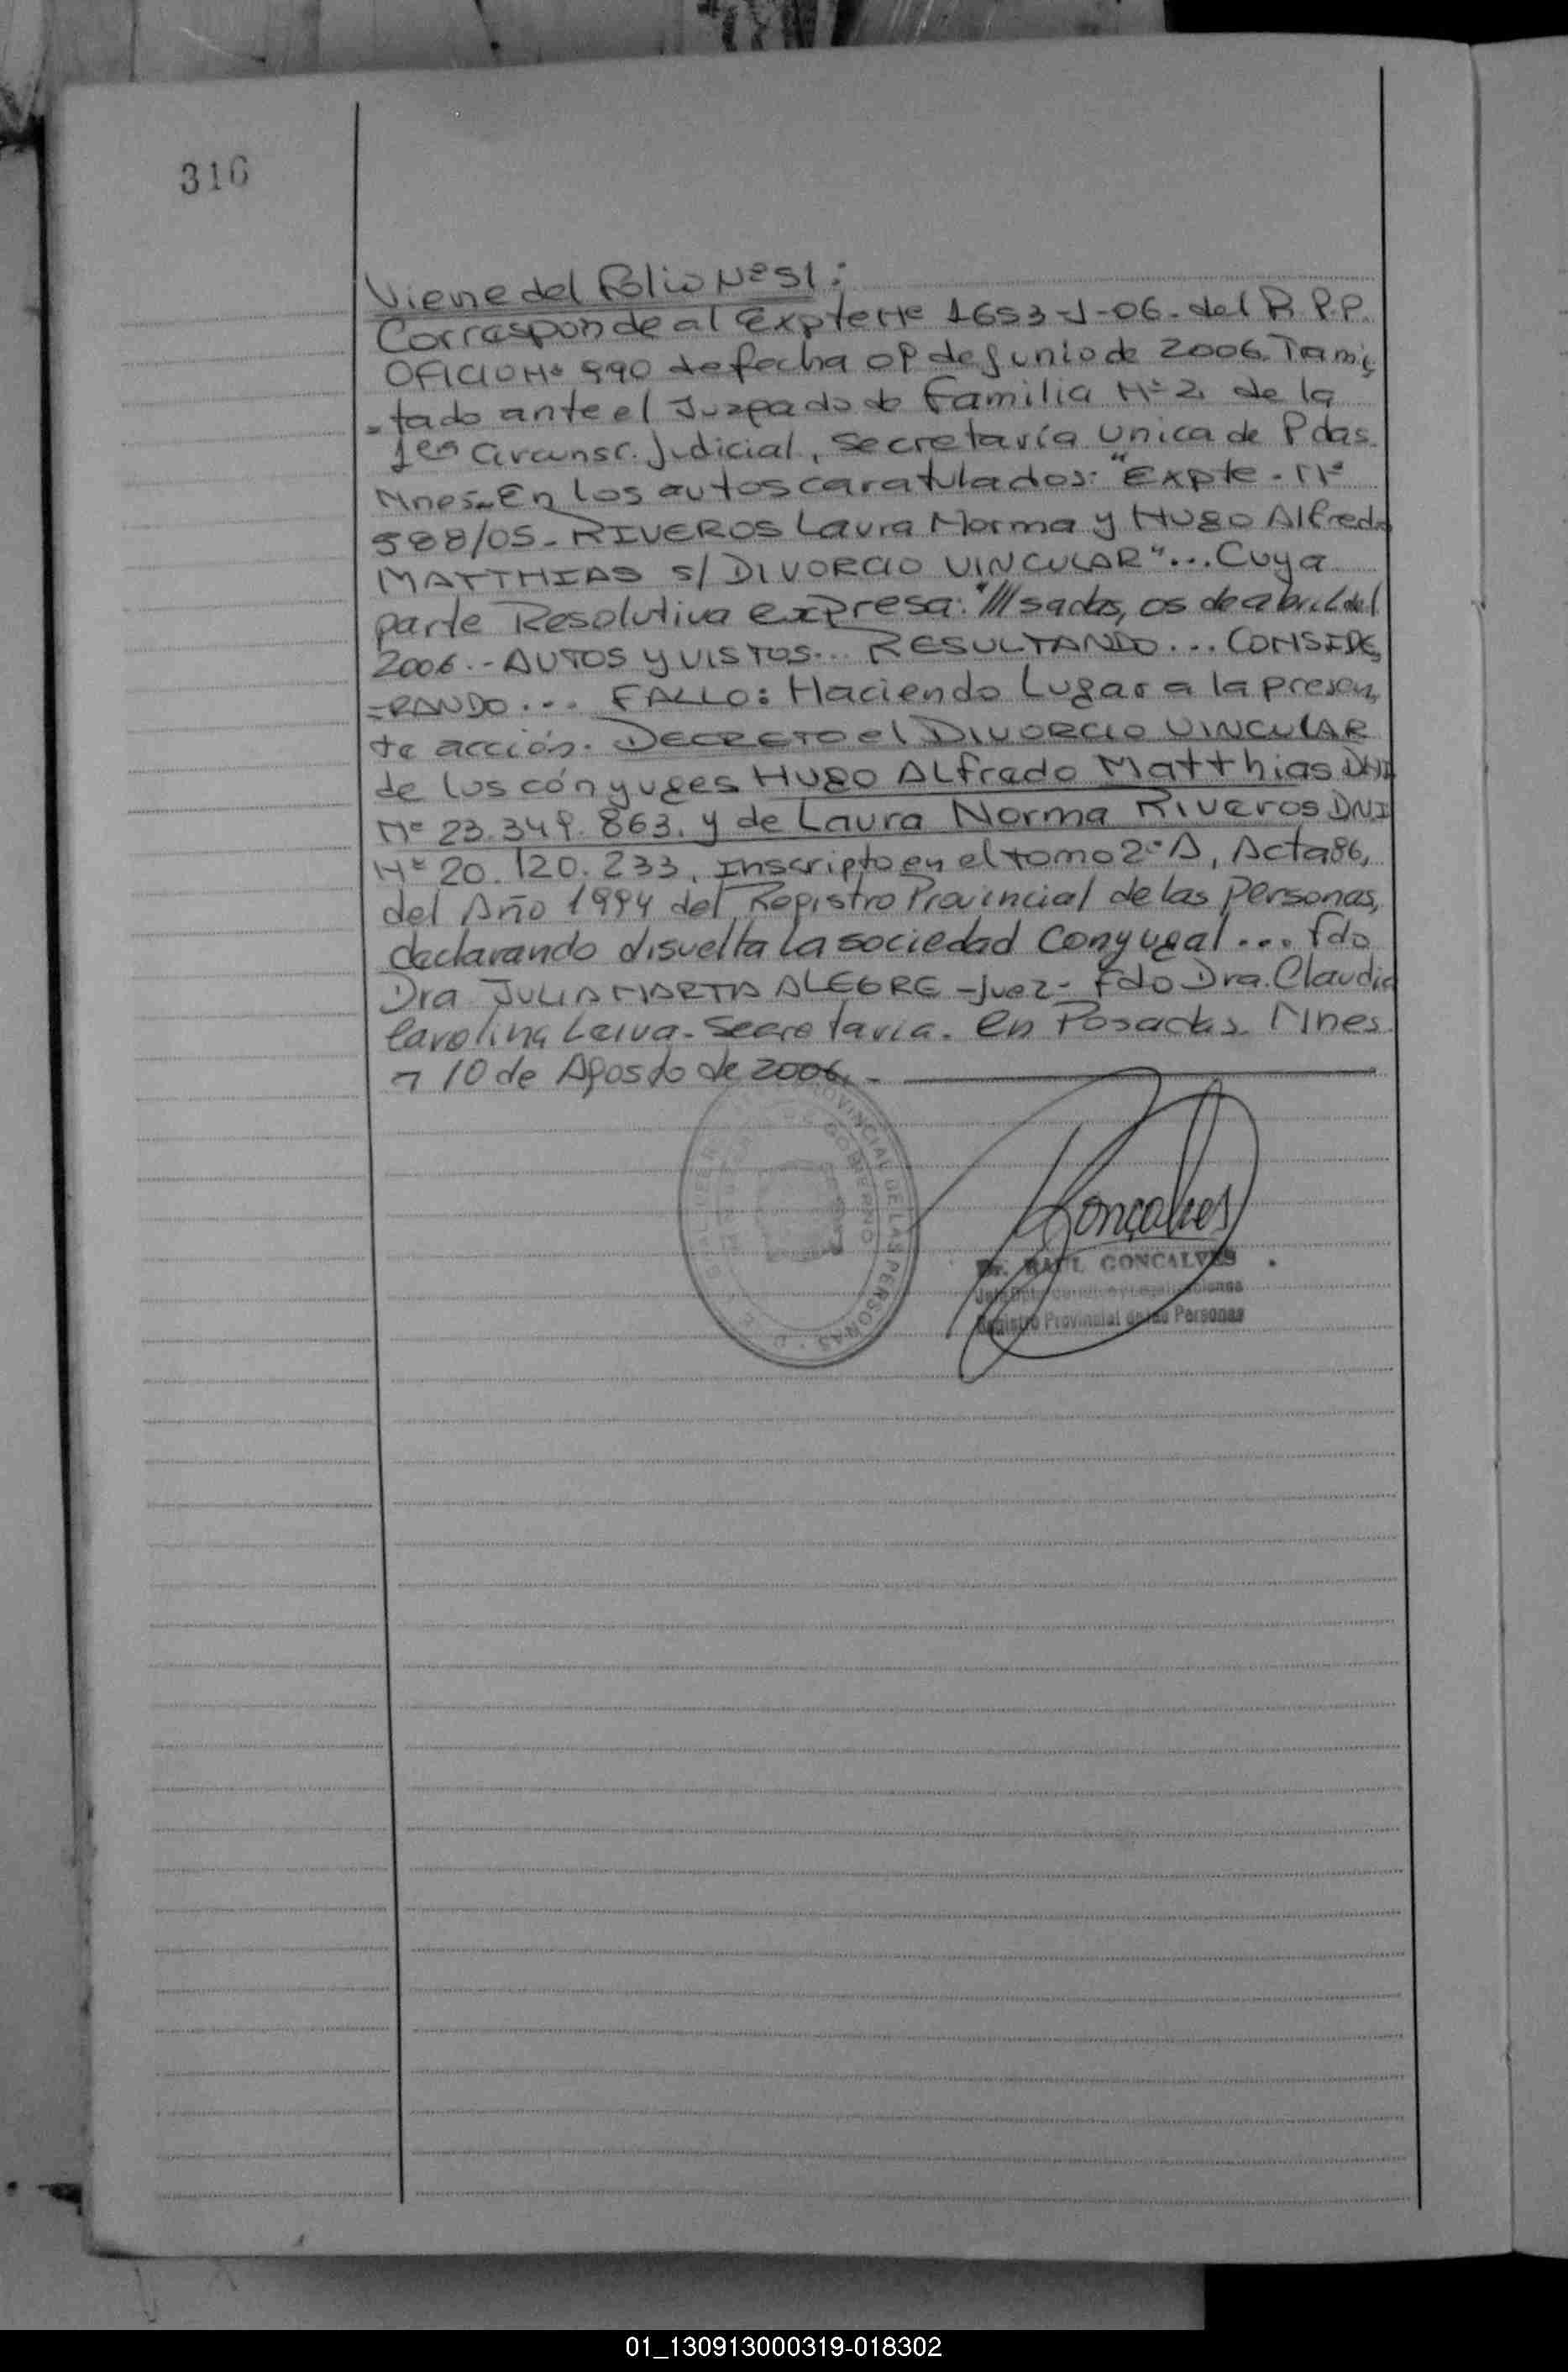 316
Viene del Folio Nº 51:
Corresponde al Expte Nº 1653-J-06. del R.P.P.
OFICIO Nº 990 de fecha 09 de Junio de 2006. Trami
=tado ante el Juzgado de Familia Nº 2, de la
1era Circunsc. Judicial, Secretaría Unica de Pdas.
Mnes.- En los autos caratulados: "Expte. Nº
588/05- RIVEROS Laura Norma y Hugo Alfredo
MATTHIAS s/ DIVORCIO VINCULAR"... Cuya
parte Resolutiva expresa: "///sadas, 05 de abril del
2006.- AUTOS y VISTOS... RESULTANDO... CONSIDE
=RANDO... FALLO: Haciendo Lugar a la presen
te acción. DECRETO el DIVORCIO VINCULAR
de los cónyuges Hugo Alfredo Matthias DNI
Nº 23.349.863. y de Laura Norma Riveros DNI
Nº 20.120.233, Inscripto en el tomo 2º A, Acta 86,
del Año 1994 del Registro Provincial de las Personas,
declarando disuelta la sociedad Conyugal... fdo
Dra JULIA MARTA ALEGRE -juez- Fdo Dra. Claudia
Carolina Leiva- Secretaria. En Posadas Mnes
a 10 de Agosto de 2006.-
PROVINCIAL DE LAS PERSONAS
GOBIERNO
Gonçalves
Dr. RAUL GONCALVES
Registro Provincial de las Personas
01_130913000319-018302